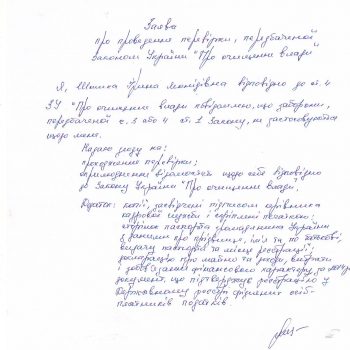 Заява
про проведення перевірки, передбаченої
Законом України "Про очищення влади"
Я, Ірина Леонідівна відповідно до ст. 4
ЗУ "Про очищення влади" повідомляю, що заборони,
передбачені ч. 3 або 4 ст. 1 Закону, не застосовуються
щодо мене.
Надаю згоду на:
проходження перевірки;
оприлюднення відомостей щодо себе відповідно
до Закону України "Про очищення влади".
Додаток: копії, засвідчені підписом керівника
кадрової служби і скріплені печаткою:
сторінок паспорта громадянина України
з даними про прізвище, ім'я та по батькові,
видачу паспорта та місце реєстрації,
декларацію про майно та доходи, витрати
і зобов'язання фінансового характеру за
документ, що підтверджує реєстрацію у
Державному реєстрі фізичних осіб-
платників податків.